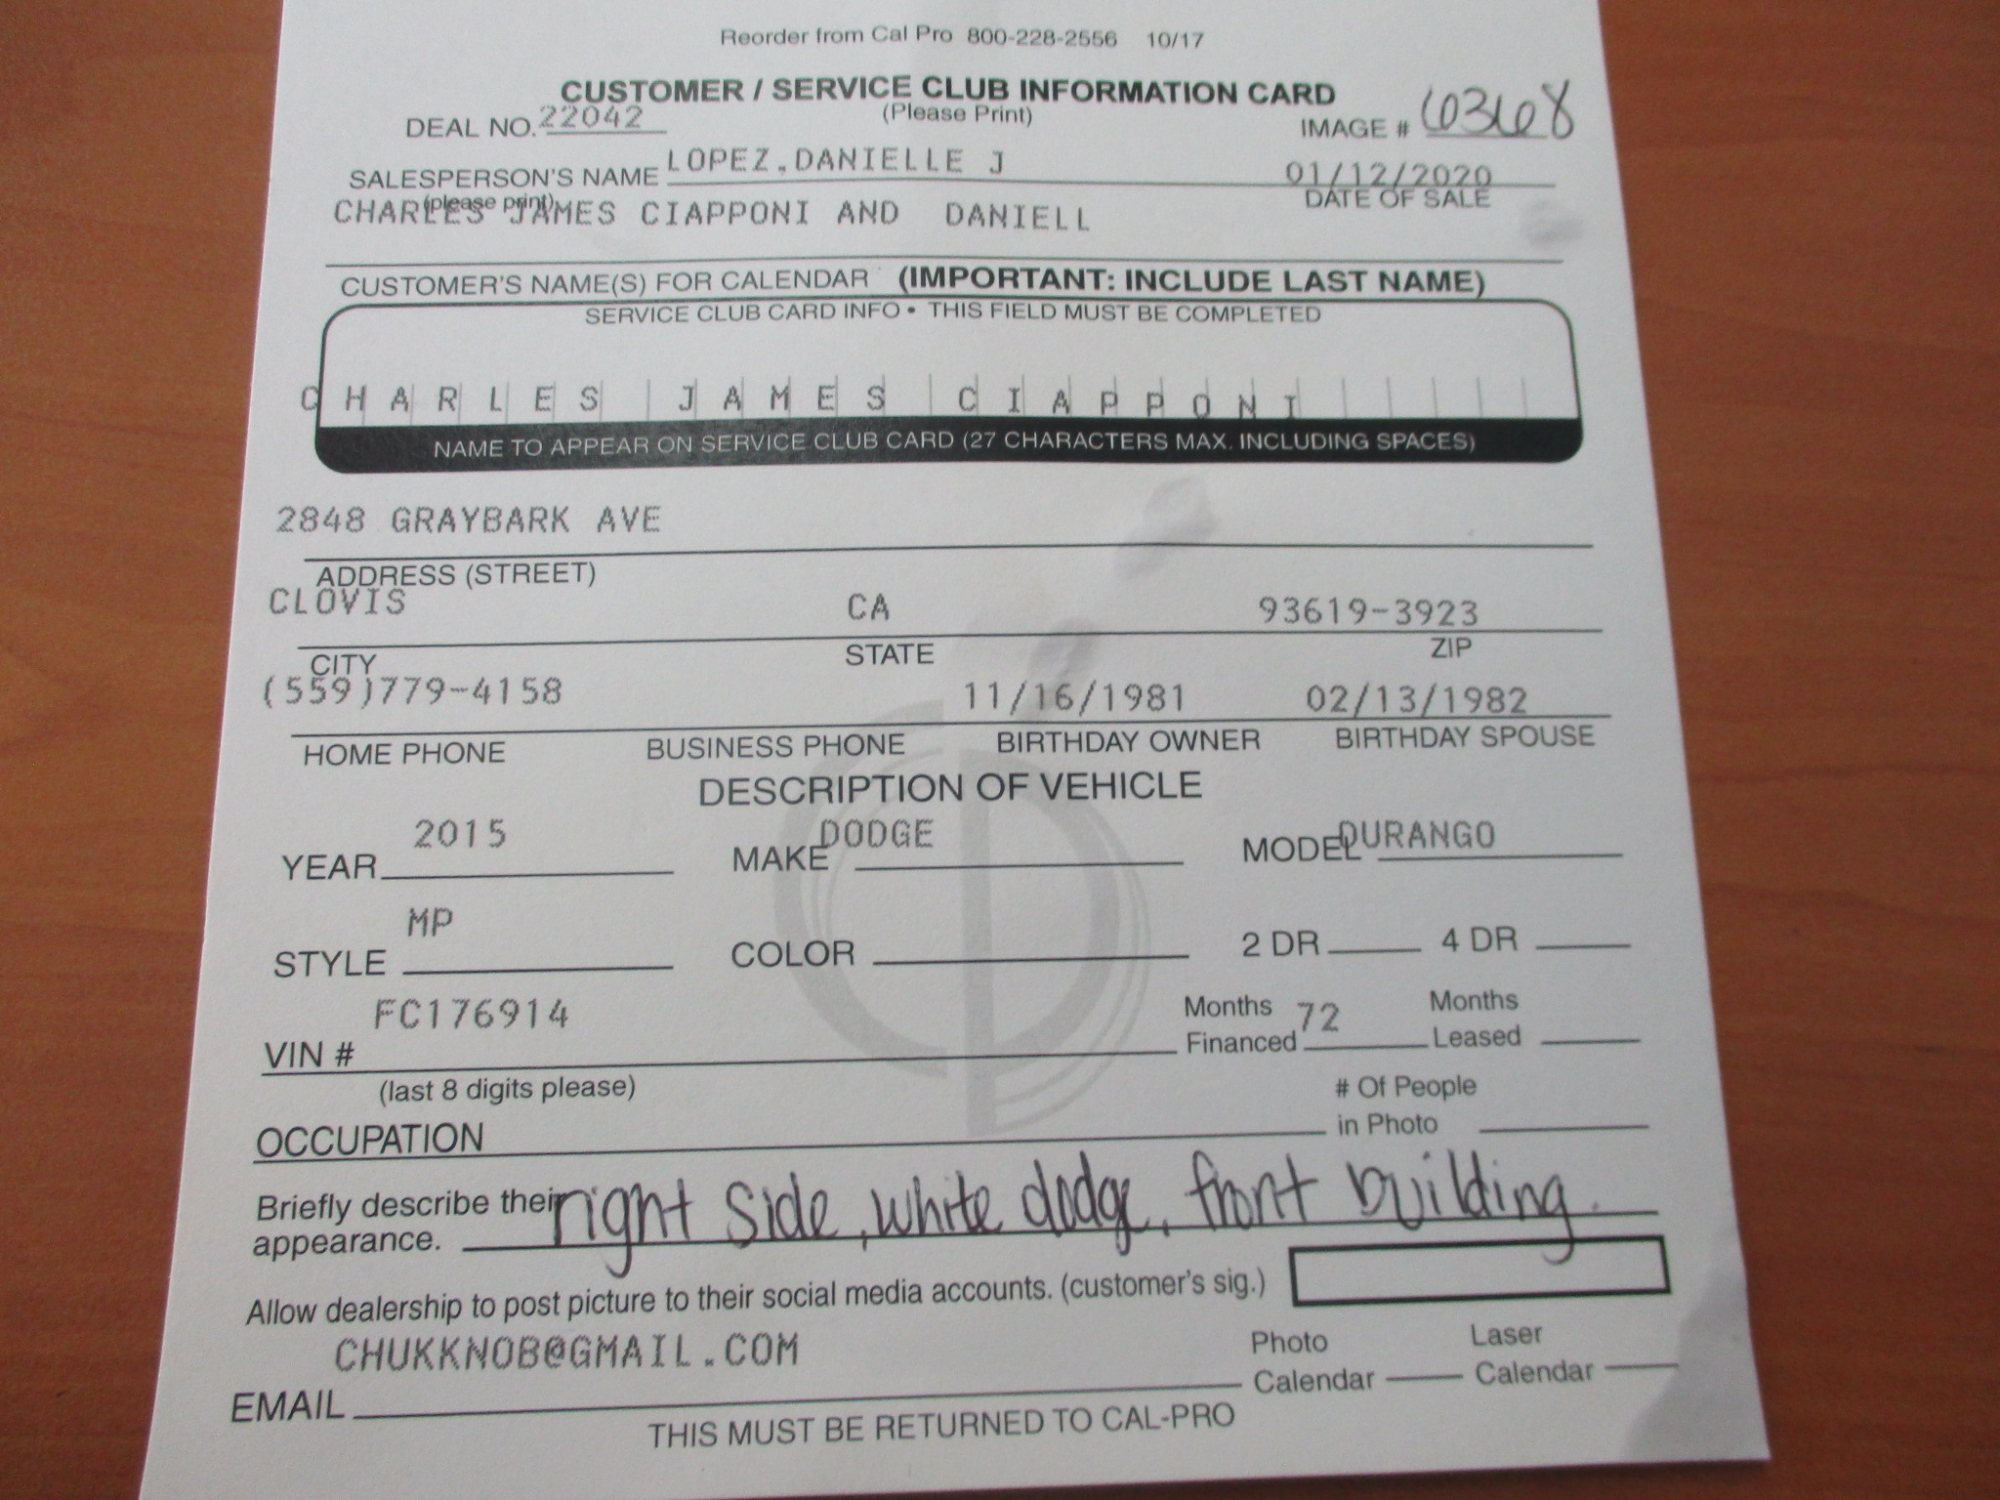 Reorder from Cal Pro 800-228-2556 10/17
CUSTOMER / SERVICE CLUB INFORMATION CARD
(Please Print)
DEAL NO. 22042
IMAGE # 60368
SALESPERSON'S NAME LOPEZ,DANIELLE J
01/12/2020
(please print)
DATE OF SALE
CHARLES JAMES CIAPPONI AND DANIELL
CUSTOMER'S NAME(S) FOR CALENDAR (IMPORTANT: INCLUDE LAST NAME)
SERVICE CLUB CARD INFO • THIS FIELD MUST BE COMPLETED
CHARLES JAMES CIAPPONI
NAME TO APPEAR ON SERVICE CLUB CARD (27 CHARACTERS MAX. INCLUDING SPACES)
2848 GRAYBARK AVE
ADDRESS (STREET)
CLOVIS CA 93619-3923
CITY STATE ZIP
(559)779-4158 11/16/1981 02/13/1982
HOME PHONE BUSINESS PHONE BIRTHDAY OWNER BIRTHDAY SPOUSE
DESCRIPTION OF VEHICLE
YEAR 2015 MAKE DODGE MODEL DURANGO
STYLE MP COLOR 2 DR 4 DR
VIN # FC176914 Months Financed 72 Months Leased
(last 8 digits please)
OCCUPATION # Of People in Photo
Briefly describe their appearance. right side, white dodge, front building.
Allow dealership to post picture to their social media accounts. (customer's sig.)
EMAIL CHUKKNOB@GMAIL.COM Photo Calendar Laser Calendar
THIS MUST BE RETURNED TO CAL-PRO